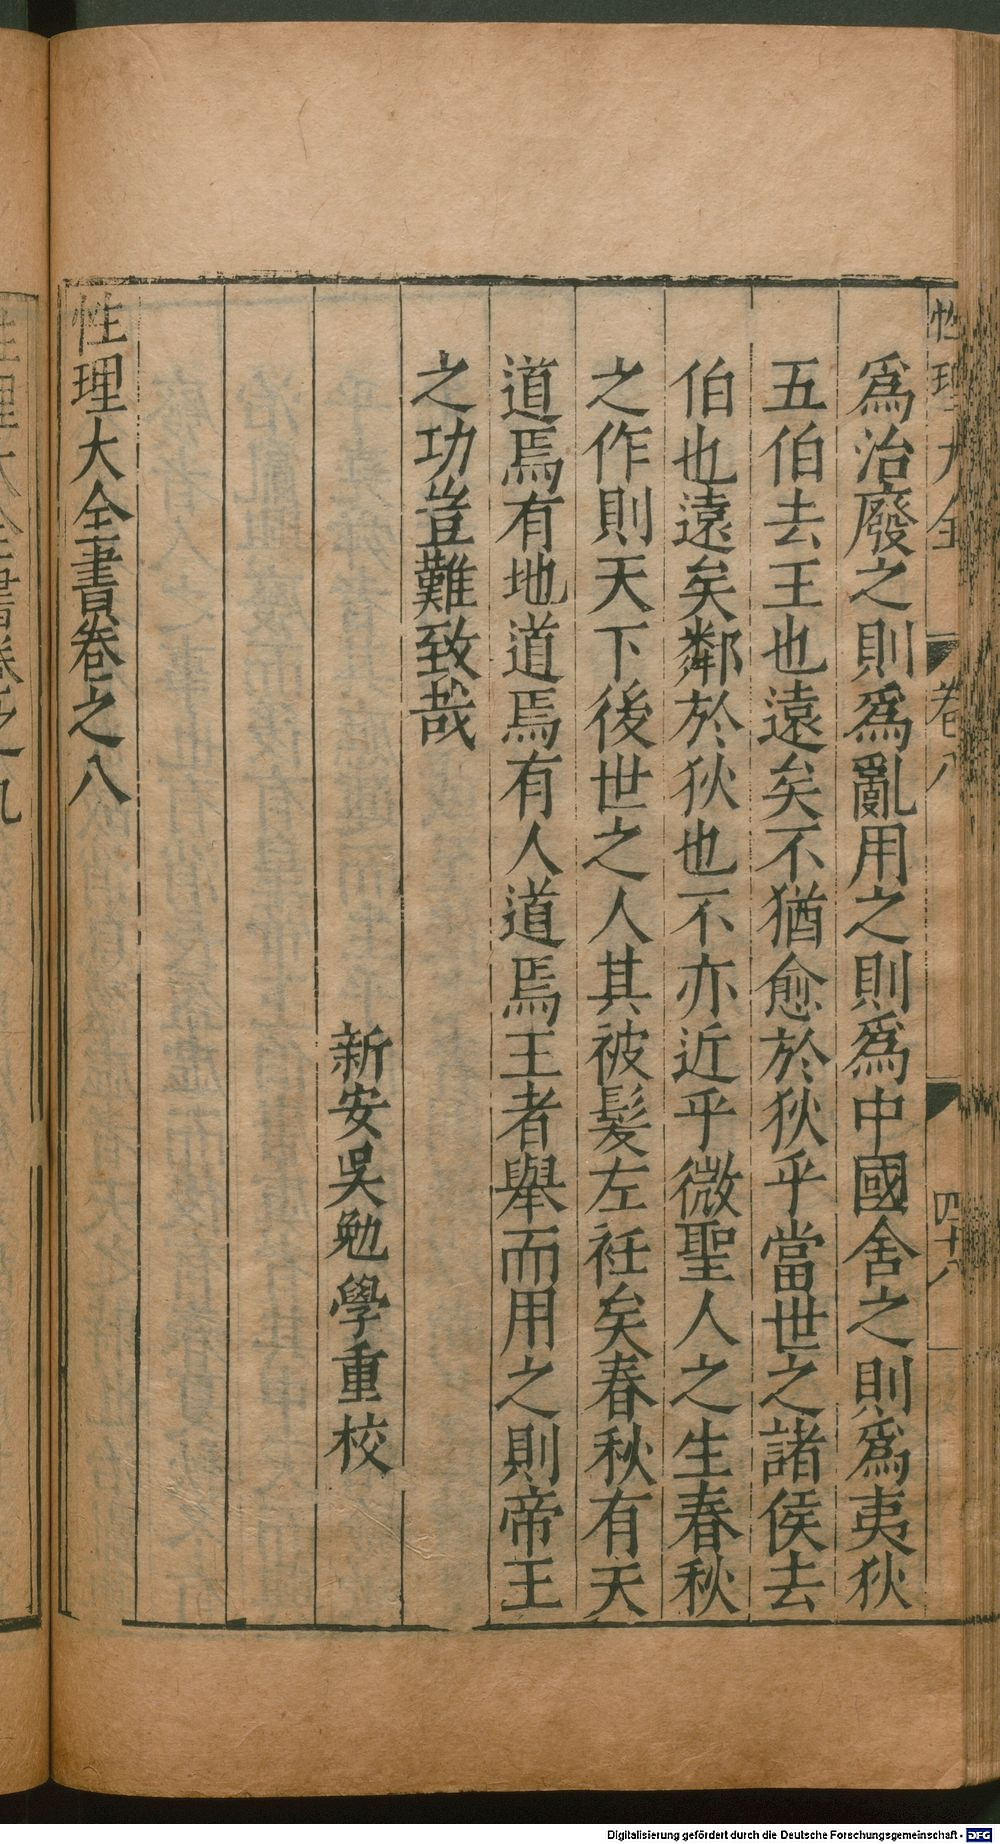 性理大全 卷八 四十八
爲治廢之則爲亂用之則爲中國舍之則爲夷狄
五伯去王也遠矣不猶愈於狄乎當世之諸侯去
伯也遠矣鄰於狄也不亦近乎微聖人之生春秋
之作則天下後世之人其被髮左衽矣春秋有天
道焉有地道焉有人道焉王者舉而用之則帝王
之功豈難致哉
新安吳勉學重校
性理大全書卷之八
性理大全書卷之九
Digitalisierung gefördert durch die Deutsche Forschungsgemeinschaft - DFG